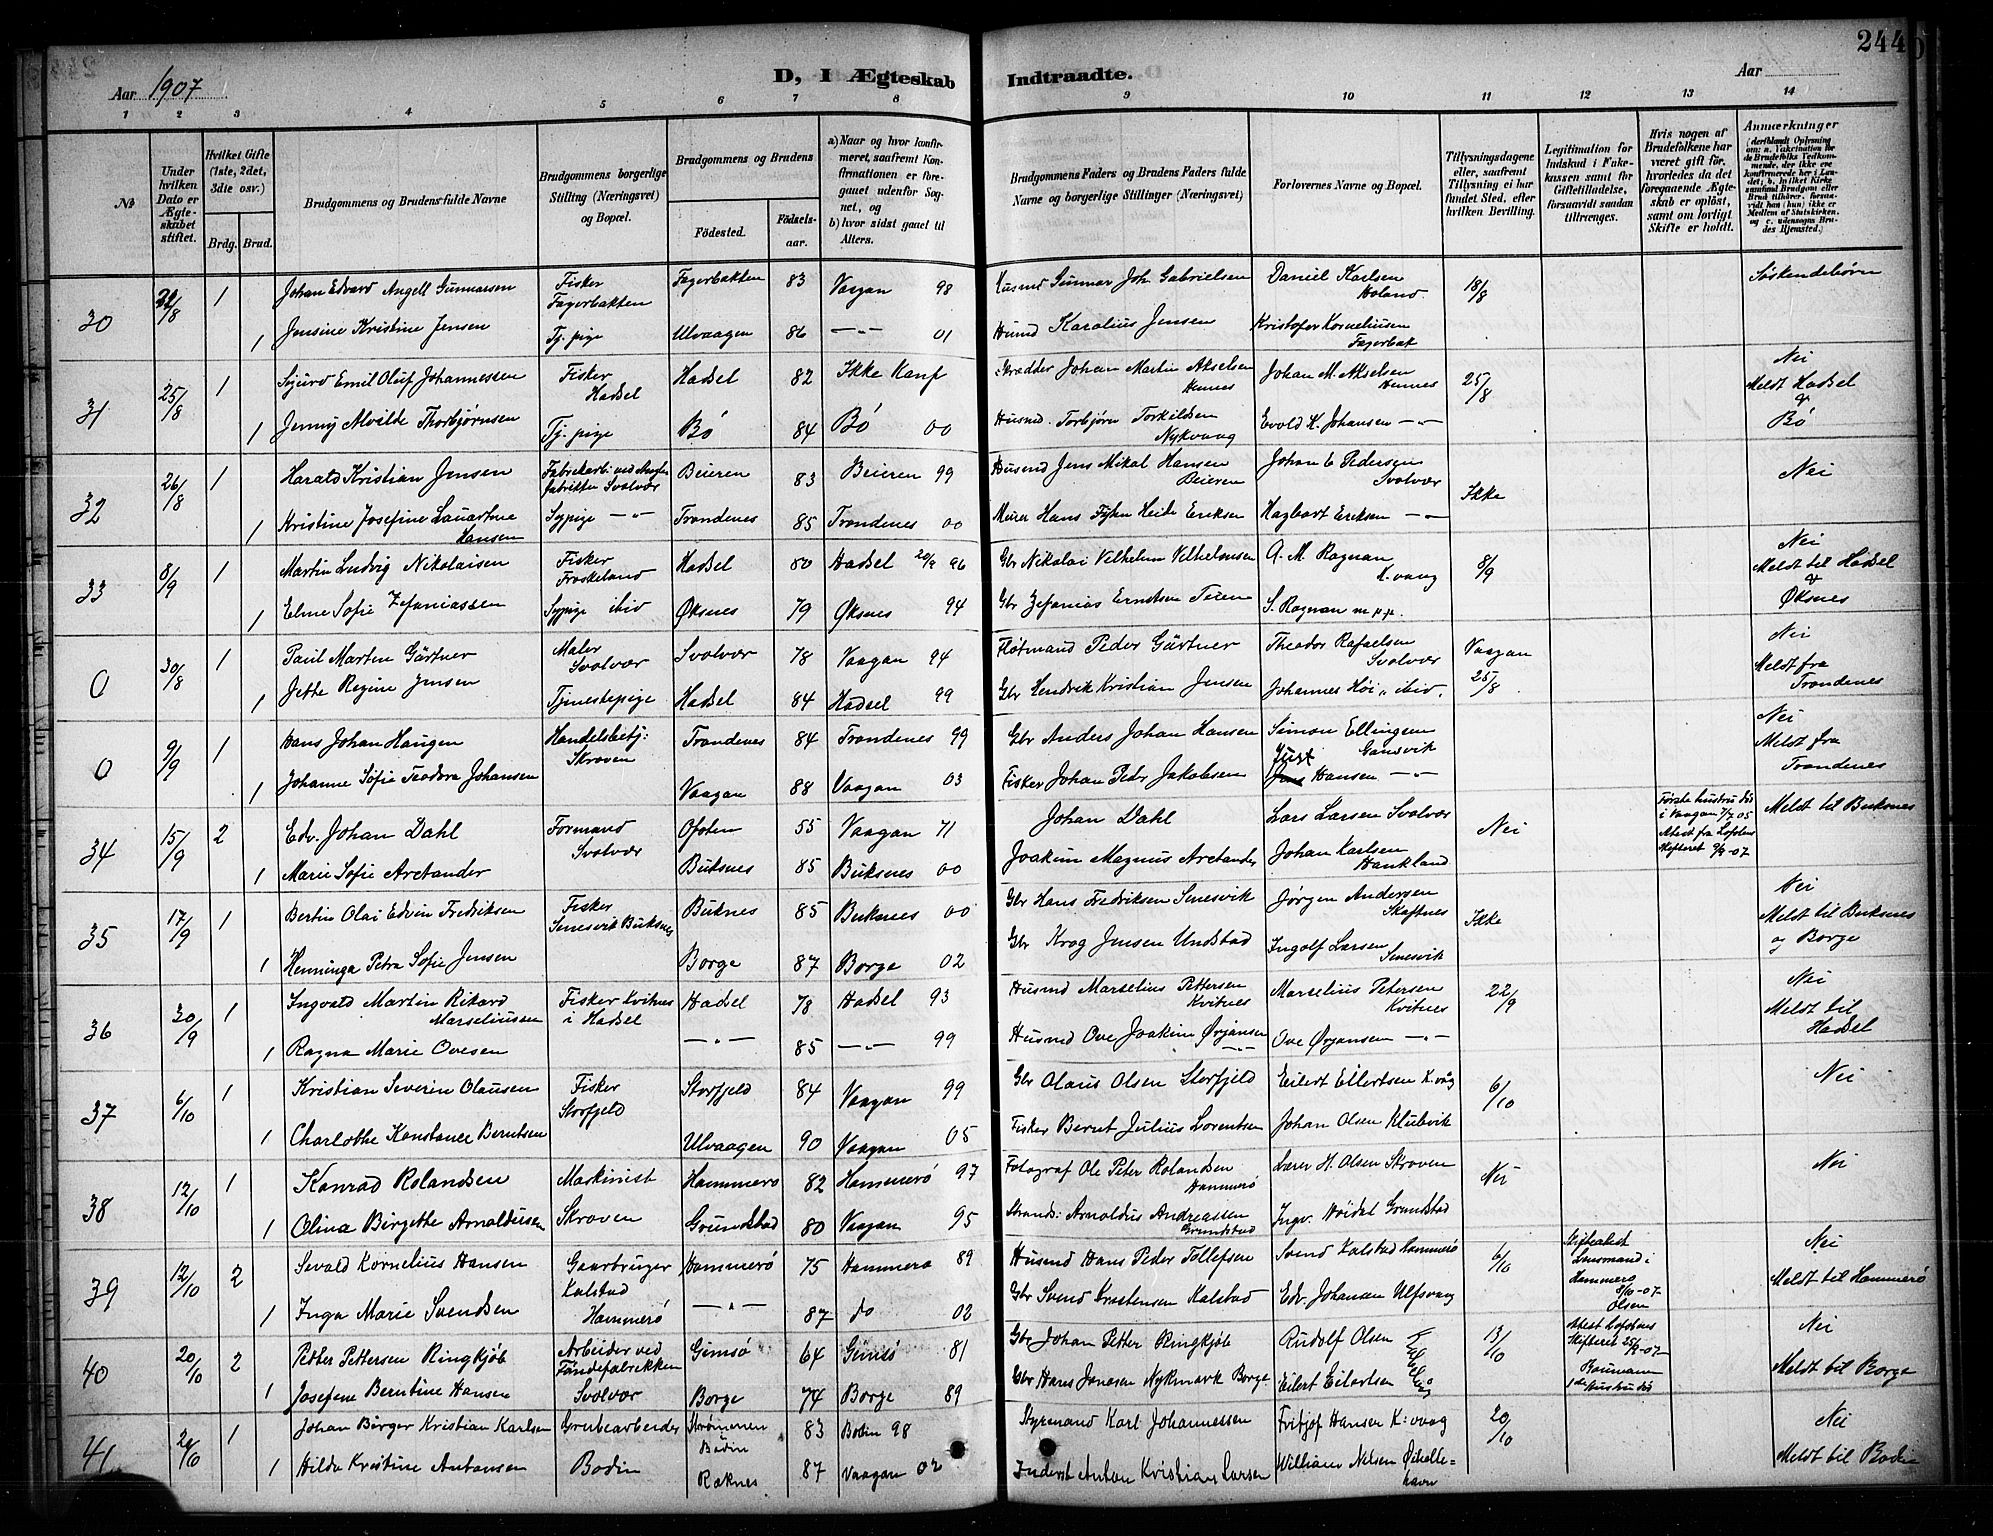 244
Aar 1907
D, I Ægteskab Indtraadte.
Aar
1 2 3 4 5 6 7 8 9 10 11 12 13 14
№
Under hvilken Dato er Ægteskabet stiftet.
Hvilket Gifte (1ste, 2det, 3die osv.)
Brdg. Brud.
Brudgommens og Brudens fulde Navne
Brudgommens borgerlige Stilling (Næringsvei) og Bopæl.
Brudgommens og Brudens
Födested.
Födselsaar.
a) Naar og hvor konfirmeret, saafremt Konfirmationen er foregaaet udenfor Sognet, og
b) hvor sidst gaaet til Alters.
Brudgommens Faders og Brudens Faders fulde Navne og borgerlige Stillinger (Næringsvei)
Forlovernes Navne og Bopæl.
Tillysningsdagene eller, saafremt Tillysning ei har fundet Sted, efter hvilken Bevilling.
Legitimation for Indskud i Fakekassen samt för Giftetilladelse, forsaavidt saadan tiltrænges.
Hvis nogen af Brudefolkene har været gift för, hvorledes da det foregaaende Ægteskab er oplöst, samt om lovligt Skifte er holdt.
Anmærkninger
(deriblandt Oplysning om: a. Vakcination for de Brudefolks Vedkommende, der ikke ere konfirmerede her i Landet; b. hvilket Kirkesamfund Brudgom eller Brud tilhörer, forsaavidt han (hun) ikke er Medlem af Statskirken, og c. udensogns Brudes Hjemsted.)
30 21/8 1 Johan Edvard Angell Gunnarsen Fisker Fagerbakken Fagerbakken 83 Vaagan 98 Husmd Gunnar Joh. Gabrielsen Daniel Karlsen Holand 18/8 Söskendebörn
1 Jensine Kristine Jensen Tj. pige Ulvaagen 86 —"— 01 Husmd Karolius Jensen Kristofer Korneliusen Fagerbak
31 25/8 1 Sigurd Emil Oluf Johannessen Fisker Hadsel Hadsel 82 Ikke Konf Skrædder Johan Martin Akselsen Hennes Johan M. Akselsen Hennes 25/8 Nei Meldt Hadsel & Bö
1 Jenny Alvilde Thorbjørnsen Tj. pige Bö 84 Bö 00 Husmd. Torbjörn Torkildsen Nykvaag Evold K. Johansen —"—
32 26/8 1 Harald Kristian Jensen Fabrikarb. ved fabrikken Svolvær Beieren 83 Beieren 99 Husmd Jens Mikal Hansen Beieren Johan E Pedersen Svolvær Ikke Nei
1 Kristine Josefine Hansen Sypige —"— Trondenes 85 Trondenes 00 Murer Hans Heide Eriksen Hagbart Eriksen —"—
33 8/9 1 Martin Ludvig Nikolaisen Fisker Froskeland Hadsel 80 Hadsel 20/9 96 Gbr Nikolai Vilhelm Vilhelmsen A. M. Rognan K. vaag 8/9 Nei Meldt til Hadsel & Øksnes
1 Elme Sofie Zefaniassen Sypige ibid Øksnes 79 Øksnes 94 Gbr Zefanias Erntsen S. Rognan
0 30/8 1 Paul Martin Gärtner Maler Svolvær Svolvær 78 Vaagan 94 Fløtmand Peder Gärtner Theodor Rafaelsen Svolvær Vaagan 25/8 Nei Meldt fra Trondenes
1 Jette Regine Jensen Tjenestepige Hadsel 84 Hadsel 99 Gbr Hendrik Kristian Jensen Johannes Höi " ibid.
0 9/9 1 Hans Johan Haugen Handelsbetj: Skroven Trondenes 84 Trondenes 99 Gbr Anders Johan Hansen Simon Ellingsen Gansvik Nei Meldt fra Trondenes
1 Johanne Sofie Teodora Johansen Vaagan 88 Vaagan 03 Fisker Johan Peder Jakobsen Just Hansen —"—
34 15/9 2 Edv. Johan Dahl Formand Svolvær Ofoten 55 Vaagan 71 Johan Dahl Lars Larsen Svolvær Nei Første hustru död i Vaagan 7/7 05 Attest fra Lofotens skifteret 9/9-07 Meldt til Buksnes
1 Marie Sofie Arctander Buksnes 85 Buksnes 00 Joakim Magnus Arctander Johan Karlsen Haukland
35 17/9 1 Bertin Olai Edvin Fredriksen Fisker Senesvik Buksnes Buknes 85 Buknes 00 Gbr Hans Fredriksen Senesvik Jørgen Andersen Skaftnes Ikke Nei Meldt til Buksnes og Borge
1 Henninga Petra Sofie Jensen Borge 87 Borge 02 Gbr Krog Jensen Undstad Ingolf Larsen Senesvik
36 30/9 1 Ingvald Martin Rikard Marseliussen Fisker Kvitnes i Hadsel Hadsel 78 Hadsel 93 Husmd Marselius Pettersen Kvitnes Marselius Petersen Kvitnes 22/9 Nei Meldt til Hadsel
1 Ragna Marie Ovesen —"— 85 —"— 99 Husmd Ove Joakim Ørjansen —"— Ove Ørjansen —"—
37 6/10 1 Kristian Severin Olausen Fisker Storfjeld Storfjeld 84 Vaagan 99 Gbr Olaus Olsen Storfjeld Eilert Eilertsen K.våg 6/10 Nei
1 Charlotte Konstance Berntsen Ulvaagen 90 Vaagan 05 Fisker Bernt Julius Lorentsen Johan Olsen Klubvik
38 12/10 1 Konrad Rolandsen Maskinist Skroven Hammerø 82 Hammerö 97 Fotograf Ole Peter Rolandsen Hammerö Lærer H. Olsen Skroven Nei Nei
1 Olina Birgethe Arnoldusen Grundstad 80 Vaagan 95 Strands: Arnoldus Andreassen Grundstad Ingv. Grundstad
39 12/10 2 Sevald Kornelius Hansen Gaardbruger Kalstad Hammerö Hammerö 75 Hammerø 89 Husmd Hans Peder Tollefsen Svend Kalstad Hammerø 6/10 Skifteattest Lensmand i Hammerø 8/10-07 Olsen Nei Meldt til Hammerö
1 Inga Marie Svendsen —"— 87 do 02 Gbr Svend Kalstad Edv. Johansen Ulfsvaag
40 20/10 2 Petter Pettersen Ringkjöb Arbeider ved Tøndefabrikken Svolvær Gimsø 64 Gimsö 81 Gbr Johan Petter Ringkjöb Rudolf Olsen 13/10 Attest Lofotens Skifteret 25/9-07 1ste Hustru död Nei Meldt til Borge
1 Josefine Berntine Hansen Borge 74 Borge 89 Gbr Hans Jonasen Nykmark Borge Eilert Eilertsen
41 20/10 1 Johan Börger Kristian Karlsen Grubearbeider Bodin Strømmen Bodin 83 Bodin 98 Styrmand Karl Johannessen Fritjof Hansen K:vaag 20/10 Nei Meldt til Bodin
1 Hilda Kristine Antonsen Raknes 87 Vaagan 02 Inderst Anton Kristian Larsen William Nilsen